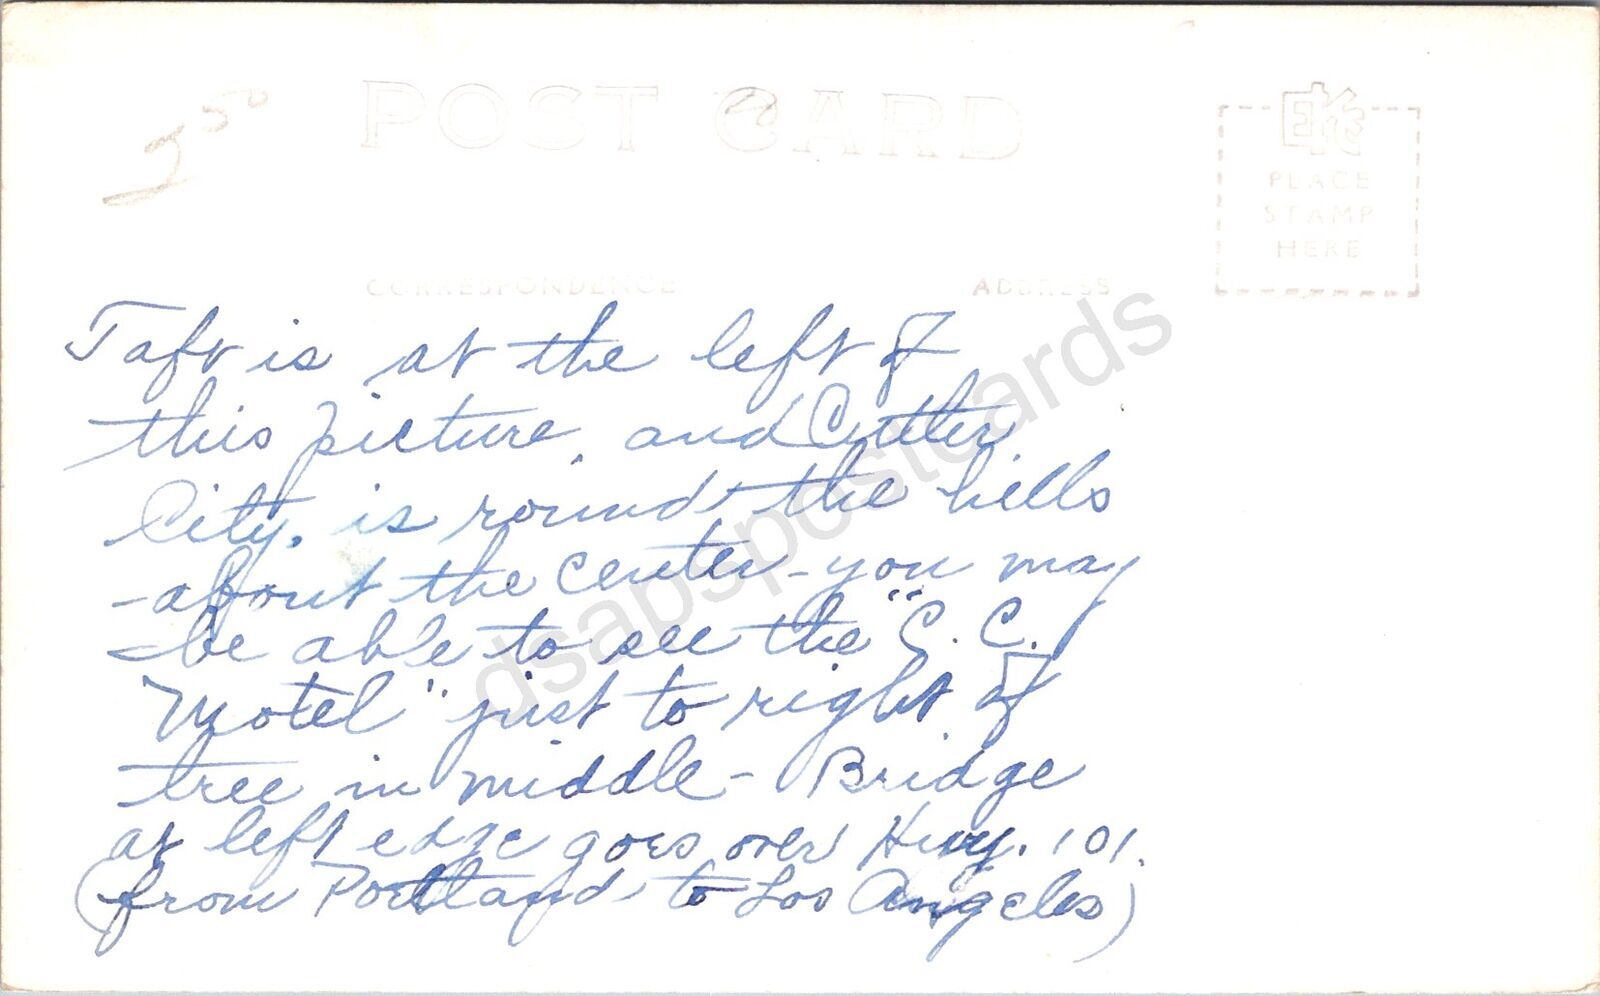 POST CARD
EKC
PLACE
STAMP
HERE
CORRESPONDENCE
ADDRESS
Taft is at the left of
this picture, and Cutler
City, is round the hills
- about the center - you may
be able to see the "C. C.
Motel" just to right of
tree in middle - Bridge
at left edge goes over Hwy. 101.
(from Portland to Los Angeles)
dsapspostcards